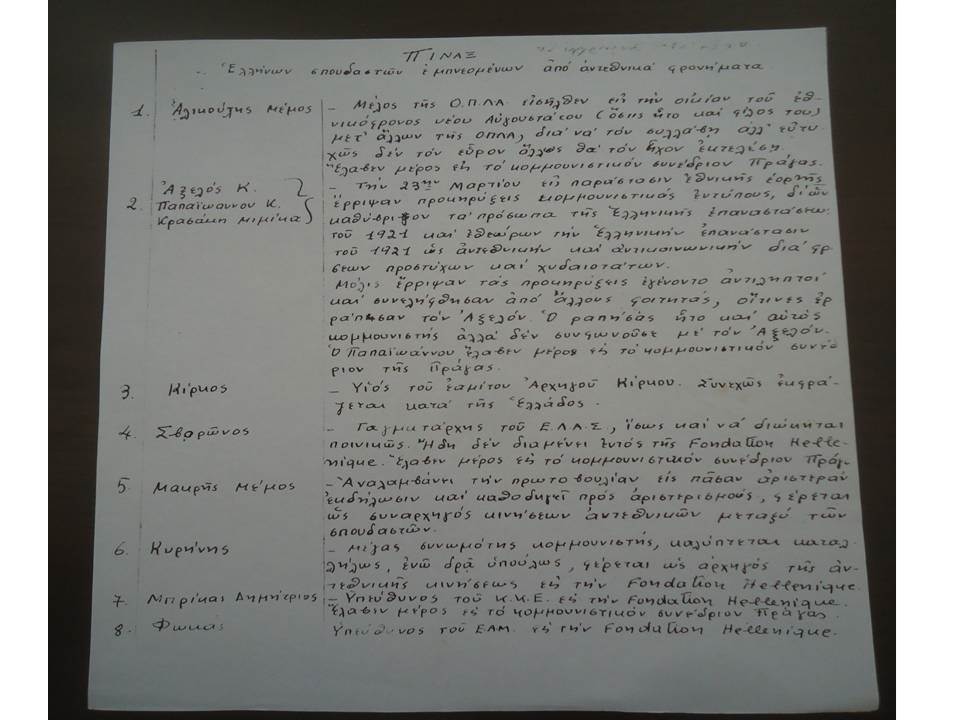 ΠΙΝΑΞ
Ἑλλήνων σπουδαστῶν ἐμπνεομένων ἀπό ἀντεθνικά φρονήματα
1. Ἀλικούτης Μέμος - Μέλος τῆς Ο.Π.ΛΑ. εἰσῆλθεν εἰς τήν οἰκίαν τοῦ ἐθ-
νικόφρονος νέου Αὐγουστάτου (ὅστις ἦτο καί φίλος του)
μετ' ἄλλων τῆς ΟΠΛΑ, διά νά τόν συλλάβῃ ἀλλ' εὐτυ-
χῶς δέν τόν εὗρον ἄλλως θά τόν εἶχον ἐκτελέσῃ.
Ἔλαβεν μέρος εἰς τό κομμουνιστικόν συνέδριον Πράγας.
2. Ἀξελός Κ. - Τήν 23ην Μαρτίου εἰς παράστασιν ἐθνικῆς ἑορτῆς
Παπαϊωάννου Κ. ἔρριψαν προκηρύξεις κομμουνιστικάς ἐντύπους, δι' ὧν
Κρασάκη Μιμίκα καθύβριζον τά πρόσωπα τῆς Ἑλληνικῆς ἐπαναστάσεως
τοῦ 1921 καί ἐθεώρων τήν Ἑλληνικήν ἐπανάστασιν
τοῦ 1921 ὡς ἀντεθνικήν καί ἀντικοινωνικήν διά φρ-
σεων προστύχων καί χυδαιοτάτων.
Μόλις ἔρριψαν τάς προκηρύξεις ἐγένοντο ἀντιληπτοί
καί συνελήφθησαν ἀπό ἄλλους φοιτητάς, οἵτινες ἐρ-
ράπισαν τόν Ἀξελόν. Ὁ ραπίσας ἦτο καί αὐτός
κομμουνιστής ἀλλά δέν συνφωνοῦσε μέ τόν Ἀξελόν.
Ὁ Παπαϊωάννου ἔλαβεν μέρος εἰς τό κομμουνιστικόν συνέδ-
ριον τῆς Πράγας.
3. Κίρκος - Υἱός τοῦ ἐαμίτου Ἀρχηγοῦ Κίρκου. Συνεχῶς ἐκφρά-
ζεται κατά τῆς Ἑλλάδος.
4. Σβορῶνος - Ταγματάρχης τοῦ Ε.Λ.Α.Σ., ἴσως καί νά διώκηται
ποινικῶς. Ἤδη δέν διαμένει ἐντός τῆς Fondation Helle-
nique. Ἔλαβεν μέρος εἰς τό κομμουνιστικόν συνέδριον Πράγ-
5. Μακρῆς Μέμος - Ἀναλαμβάνει τήν πρωτοβουλίαν εἰς πᾶσαν ἀριστεράν
ἐκδήλωσιν καί καθοδηγεῖ πρός ἀριστερισμούς, φέρεται
ὡς συναρχηγός κινήσεων ἀντεθνικῶν μεταξύ τῶν
σπουδαστῶν.
6. Κυρήνης - Μέγας συνωμότης κομμουνιστής, καλύπτεται καταλ-
λήλως, ἐνῶ δρᾷ ὑπούλως, φέρεται ὡς ἀρχηγός τῆς ἀν-
τεθνικῆς κινήσεως εἰς τήν Fondation Hellenique.
7. Μπρίκας Δημήτριος - Ὑπεύθυνος τοῦ Κ.Κ.Ε. εἰς τήν Fondation Hellenique.
Ἔλαβεν μέρος εἰς τό κομμουνιστικόν συνέδριον Πράγας.
8. Φωκᾶς Ὑπεύθυνος τοῦ ΕΑΜ. εἰς τήν Fondation Hellenique.